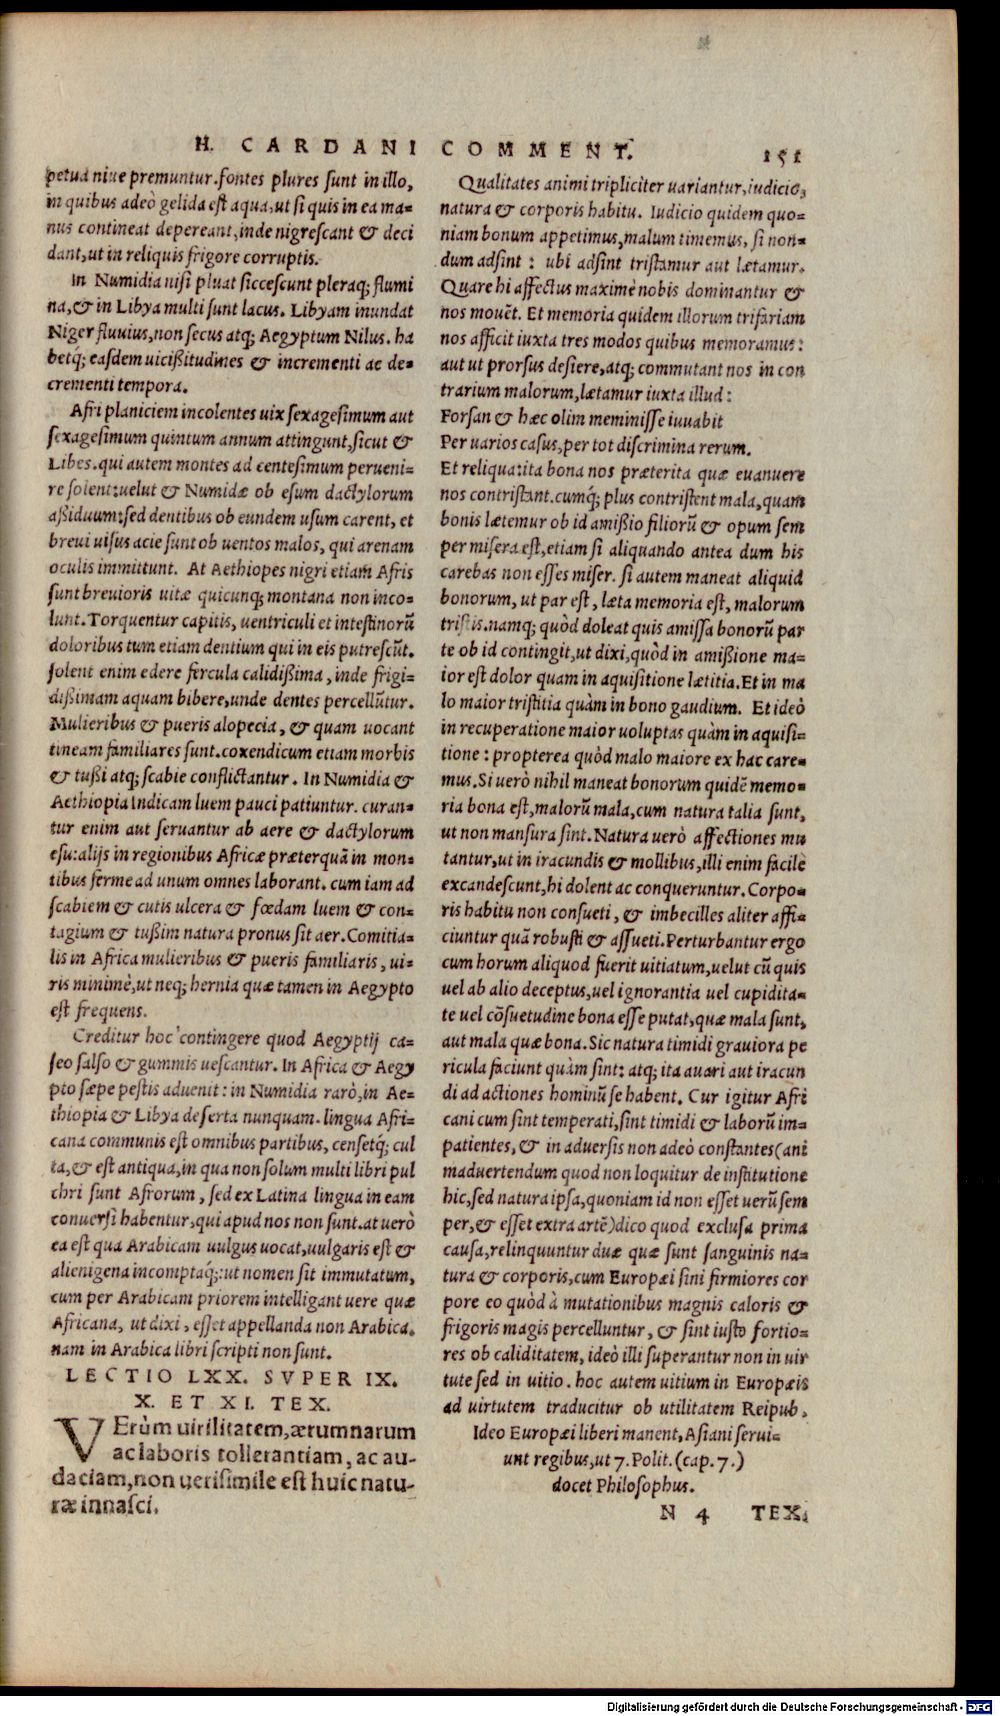 H. CARDANI COMMENT. 151
petua niue premuntur. fontes plures sunt in illo,
in quibus adeò gelida est aqua, ut si quis in ea ma=
nus contineat depereant, inde nigrescant & deci
dant, ut in reliquis frigore corruptis.
In Numidia nisi pluat siccescunt pleraq; flumi
na, & in Libya multi sunt lacus. Libyam inundat
Niger fluuius, non secus atq; Aegyptum Nilus. ha
betq́; easdem uicißitudines & incrementi ac de=
crementi tempora.
Afri planiciem incolentes uix sexagesimum aut
sexagesimum quintum annum attingunt, sicut &
Libes. qui autem montes ad centesimum perueni=
re solent: uelut & Numidæ ob esum dactylorum
aßiduum: sed dentibus ob eundem usum carent, et
breui uisus acie sunt ob uentos malos, qui arenam
oculis immittunt. At Aethiopes nigri etiam Afris
sunt breuioris uitæ quicunq; montana non inco=
lunt. Torquentur capitis, uentriculi et intestinorũ
doloribus tum etiam dentium qui in eis putrescũt.
solent enim edere fercula calidißima, inde frigi=
dißimam aquam bibere, unde dentes percellũtur.
Mulieribus & pueris alopecia, & quam uocant
tineam familiares sunt. coxendicum etiam morbis
& tußi atq; scabie conflictantur. In Numidia &
Aethiopia Indicam luem pauci patiuntur. curan=
tur enim aut seruantur ab aere & dactylorum
esu: alijs in regionibus Africæ præterquã in mon=
tibus ferme ad unum omnes laborant. cum iam ad
scabiem & cutis ulcera & fœdam luem & con=
tagium & tußim natura pronus sit aer. Comitia=
lis in Africa mulieribus & pueris familiaris, ui=
ris minimè, ut neq; hernia quæ tamen in Aegypto
est frequens.
Creditur hoc contingere quod Aegyptij ca=
seo salso & gummis uescantur. In Africa & Aegy
pto sæpe pestis aduenit: in Numidia rarò, in Ae=
thiopia & Libya deserta nunquam. lingua Afri=
cana communis est omnibus partibus, censetq́; cul
ta, & est antiqua, in qua non solum multi libri pul
chri sunt Afrorum, sed ex Latina lingua in eam
conuersi habentur, qui apud nos non sunt. at uerò
ea est qua Arabicam uulgus uocat, uulgaris est &
alienigena incomptaq́;: ut nomen sit immutatum,
cum per Arabicam priorem intelligant uere quæ
Africana, ut dixi, esset appellanda non Arabica.
nam in Arabica libri scripti non sunt.
LECTIO LXX. SVPER IX.
X. ET XI. TEX.
VErùm uirilitatem, ærumnarum
ac laboris tollerantiam, ac au-
daciam, non uerisimile est huic natu-
ræ innasci.
Qualitates animi tripliciter uariantur, iudicio,
natura & corporis habitu. Iudicio quidem quo=
niam bonum appetimus, malum timemus, si non=
dum adsint: ubi adsint tristamur aut lætamur.
Quare hi affectus maximè nobis dominantur &
nos mouẽt. Et memoria quidem illorum trifariam
nos afficit iuxta tres modos quibus memoramus:
aut ut prorsus desiere, atq; commutant nos in con
trarium malorum, lætamur iuxta illud:
Forsan & hæc olim meminisse iuuabit
Per uarios casus, per tot discrimina rerum.
Et reliqua: ita bona nos præterita quæ euanuere
nos contristant. cumq́; plus contristent mala, quam
bonis lætemur ob id amißio filiorũ & opum sem
per misera est, etiam si aliquando antea dum his
carebas non esses miser. si autem maneat aliquid
bonorum, ut par est, læta memoria est, malorum
tristis. namq; quòd doleat quis amissa bonorũ par
te ob id contingit, ut dixi, quòd in amißione ma=
ior est dolor quam in aquisitione lætitia. Et in ma
lo maior tristitia quàm in bono gaudium. Et ideò
in recuperatione maior uoluptas quàm in aquisi=
tione: propterea quòd malo maiore ex hac care=
mus. Si uerò nihil maneat bonorum quidẽ memo=
ria bona est, malorũ mala, cum natura talia sunt,
ut non mansura sint. Natura uerò affectiones mu
tantur, ut in iracundis & mollibus, illi enim facilè
excandescunt, hi dolent ac conqueruntur. Corpo=
ris habitu non consueti, & imbecilles aliter affi=
ciuntur quã robusti & assueti. Perturbantur ergo
cum horum aliquod fuerit uitiatum, uelut cũ quis
uel ab alio deceptus, uel ignorantia uel cupidita=
te uel cõsuetudine bona esse putat, quæ mala sunt,
aut mala quæ bona. Sic natura timidi grauiora pe
ricula faciunt quàm sint: atq; ita auari aut iracun
di ad actiones hominũ se habent. Cur igitur Afri
cani cum sint temperati, sint timidi & laborũ im=
patientes, & in aduersis non adeò constantes (ani
maduertendum quod non loquitur de institutione
hic, sed natura ipsa, quoniam id non esset uerũ sem
per, & esset extra artẽ) dico quod exclusa prima
causa, relinquuntur duæ quæ sunt sanguinis na=
tura & corporis, cum Europæi sini firmiores cor
pore eo quòd à mutationibus magnis caloris &
frigoris magis percelluntur, & sint iusto fortio=
res ob caliditatem, ideò illi superantur non in uir
tute sed in uitio. hoc autem uitium in Europæis
ad uirtutem traducitur ob utilitatem Reipub.
Ideo Europæi liberi manent, Asiani serui=
unt regibus, ut 7. Polit. (cap. 7.)
docet Philosophus.
N 4 TEX.
Digitalisierung gefördert durch die Deutsche Forschungsgemeinschaft - DFG